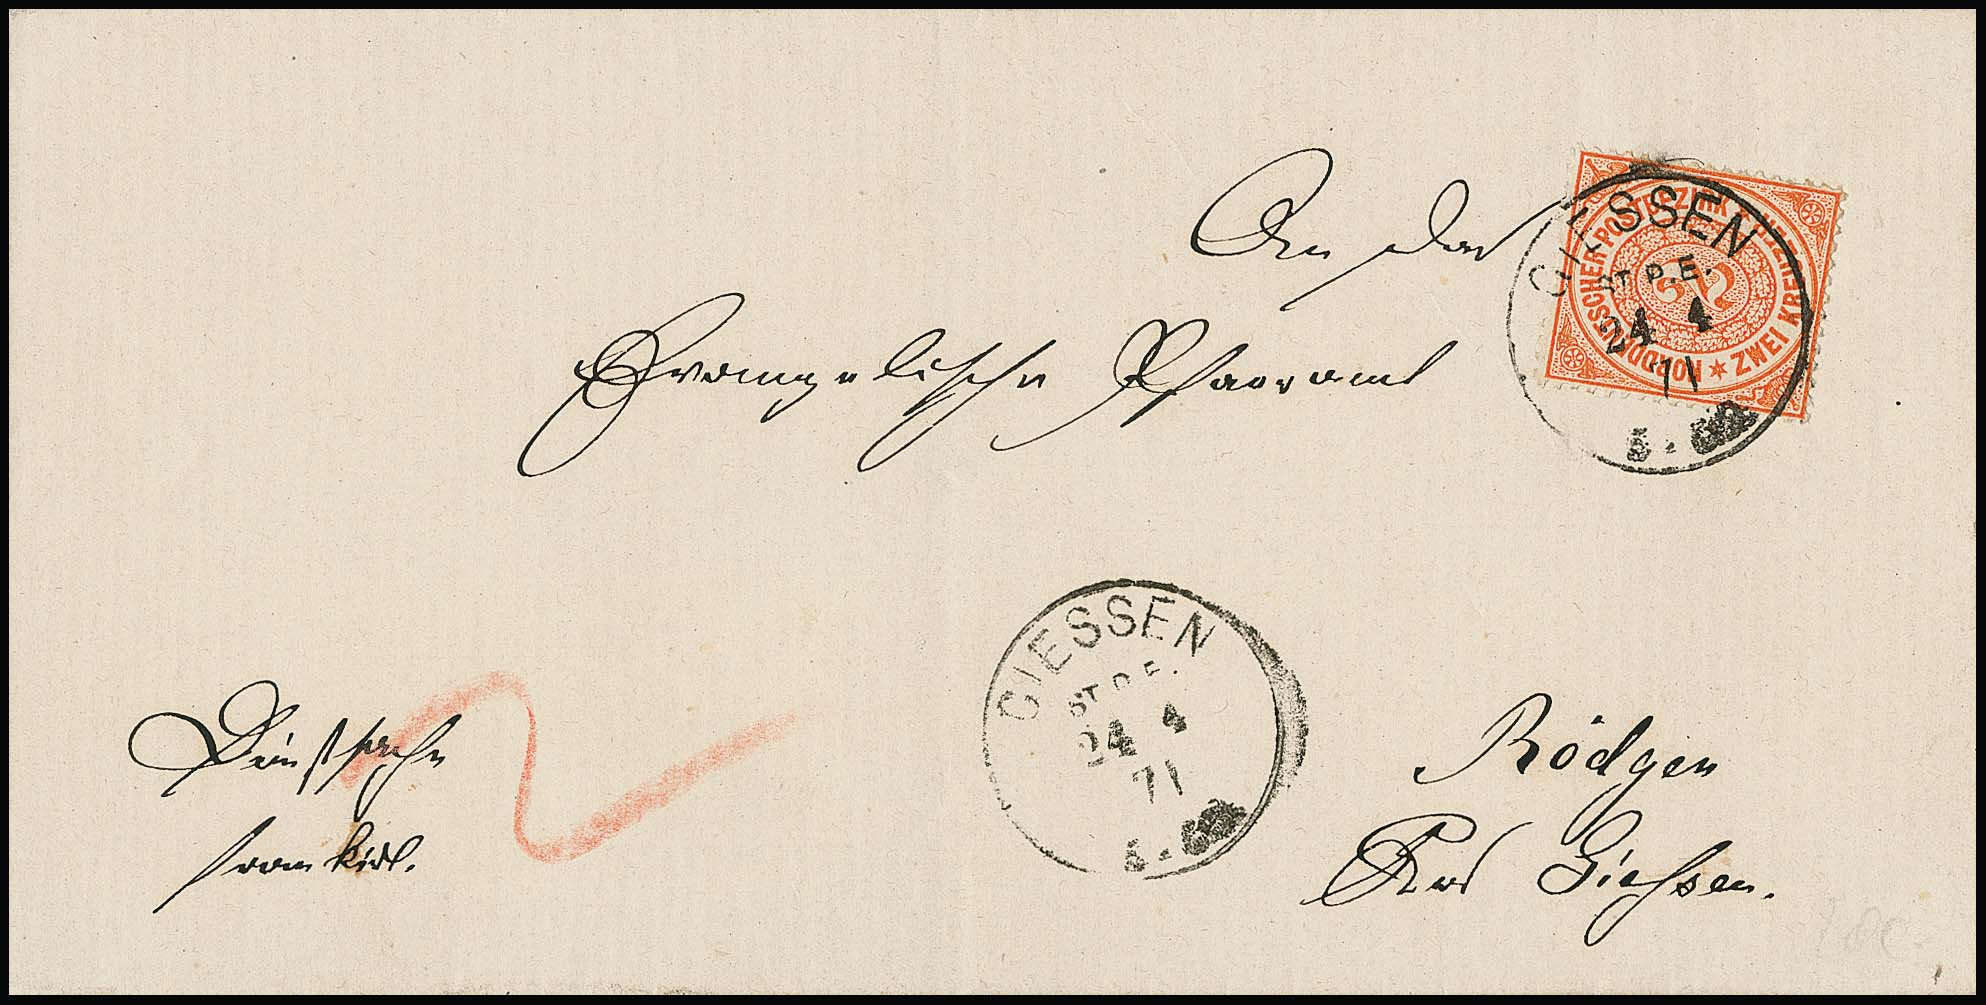 An das
Evangelische Pfarramt
NORDDEUTSCHER POSTBEZIRK * ZWEI KREUZER *
2
GIESSEN
ST. P. E.
24 4
71
GIESSEN
ST. P. E.
24 4
71
Dienstsache
frankirt.
2
Rödgen
Giessen.